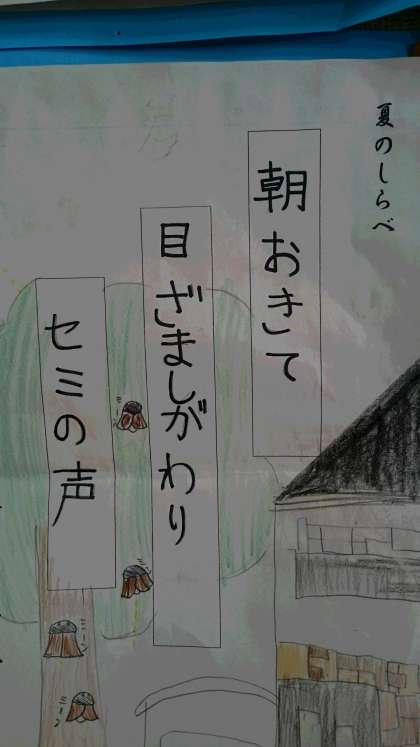 夏のしらべ
朝おきて
目ざましがわり
セミの声